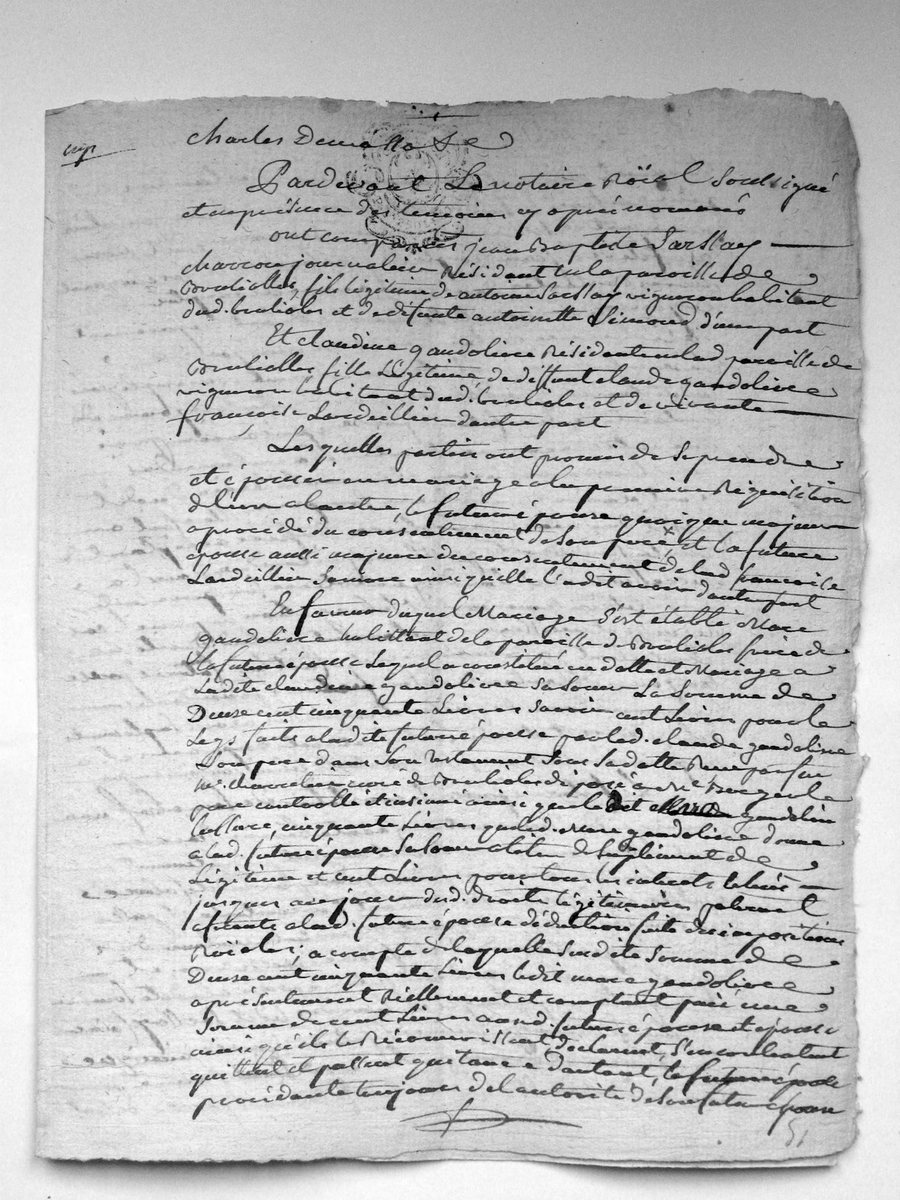 charles Demenose
Pardevant Le notaire Röial Soussigné
et en présence des temoins cy aprés nommés
ont comparus jean Baptiste Sarslay
charron journalier Résident en la paroisse de
Brulioles, fils légitime de antoine Sarslay vigneron habitant
dud. brulioles et de défunte antoinette Simond d'une part
Et claudine gandolivre Résidente en lad paroisse de
Brulioles, fille Légitime de deffunt claude gandolivre
vigneron habitant dud. brulioles et de vivante
françoise Lardellier d'autre part
Lesquelles parties ont promis de se prendre
et épouser en mariage a la premiere Réquisition
de l'un a l'autre, le futur époux quoique majeur
a procédé du consentement de son pere et la future
épouse aussi majeure du consentement de lad françoise
Lardellier sa mere ainsi quelle l'a dit avoir d'autre part
En faveur duquel Mariage s'est établi Marc
gandolivre habittant de la paroisse de Brulioles frère de
la future épouse Lequel a constitué en dotte et Mariage a
Ladite claudine gandolivre sa soeur La Somme de
Deux cent cinquante Livres savoir cent Livres pour le
Legs faits a ladite future épouse par led. claude gandolivre
son pere dans son testament sous sa datte Reçu par feu
curé de Brulioles
controllé et insinué ainsi que le dit gandolivre
cinquante Livres que led. Marc gandolivre donne
a lad. future épouse sa soeur a titre de suplément de
Légitime et cent Livres pour tous les interets
jusques au jour desd. droits légitimaires
a lad. future épouse déduction faite des impositions
Röiales; a compte de laquelle susdite somme de
Deux cent cinquante Livres ledit marc gandolivre
a présentement Réellement et comptant payé une
somme de cent Livres auxd. future épouse et époux
ainsi qu'ils le Reconnoissent, declarent, s'en contentent
quittent et passent quitance d'autant, la future épouse
procédante toujours de l'autorité de son futur époux
51